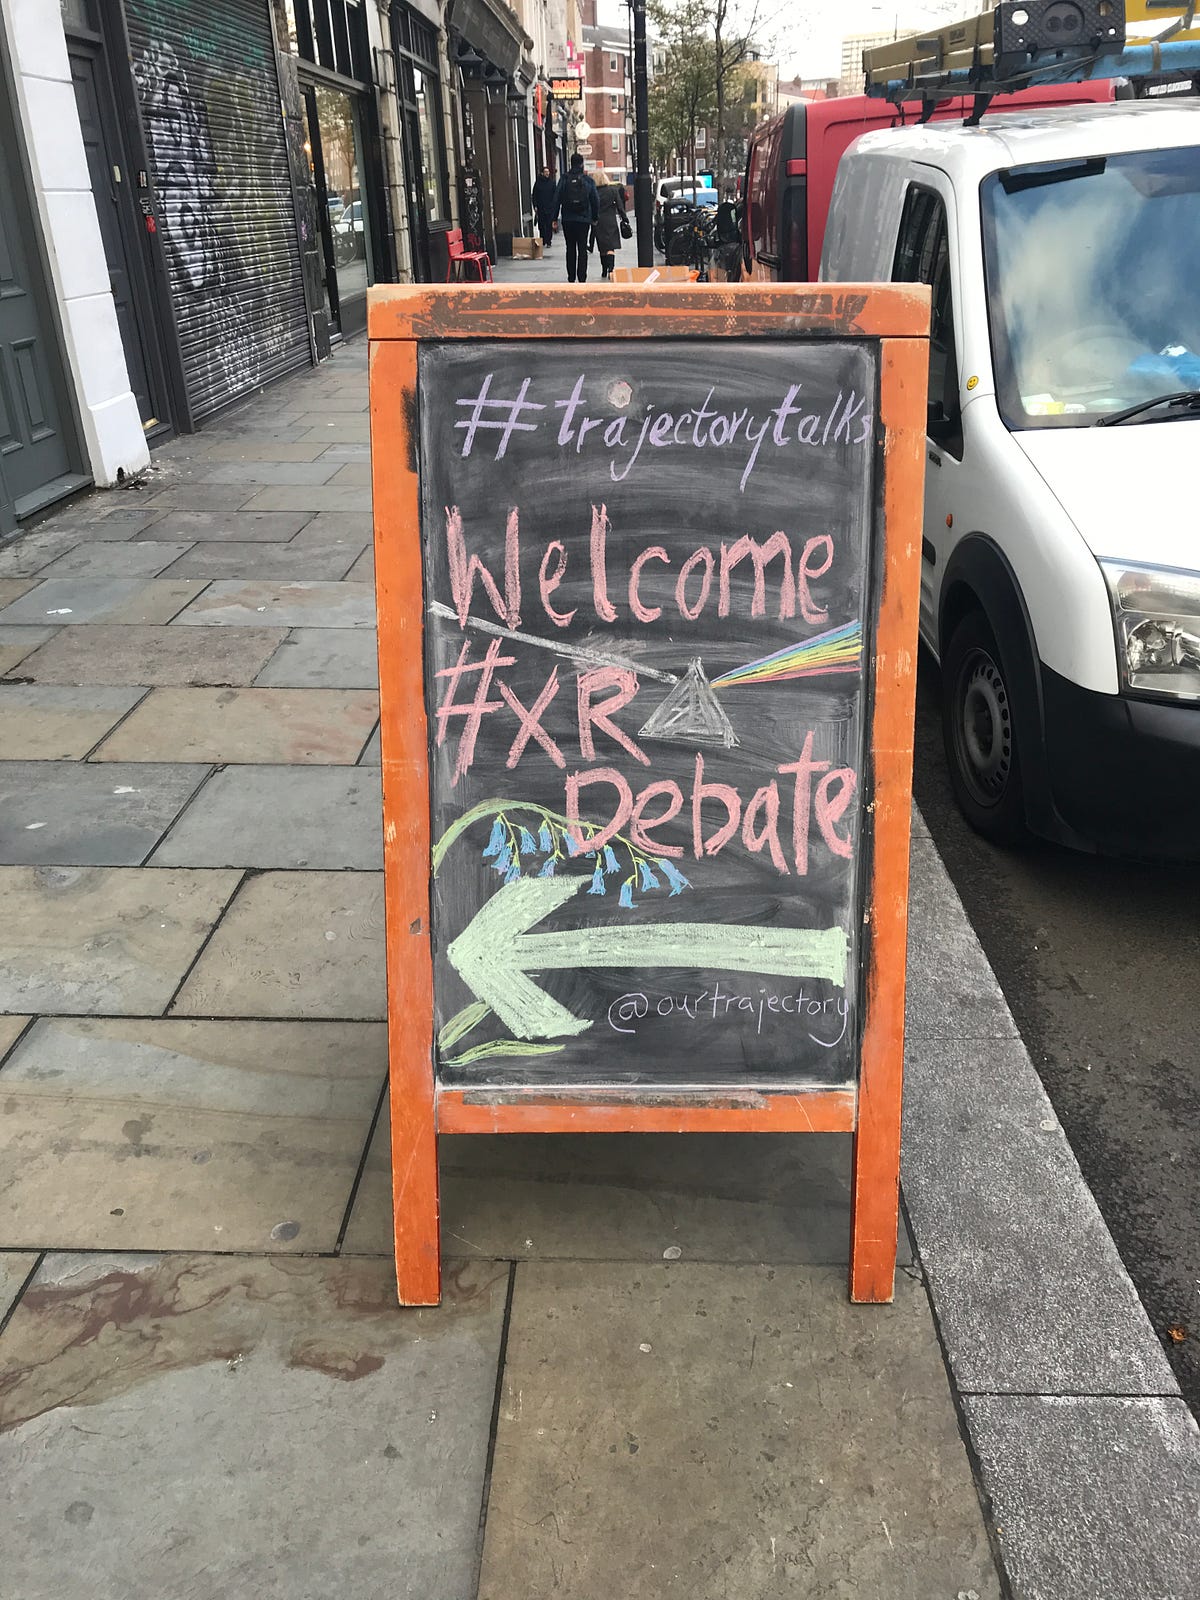 #trajectorytalks
Welcome
#XR
Debate
@ourtrajectory